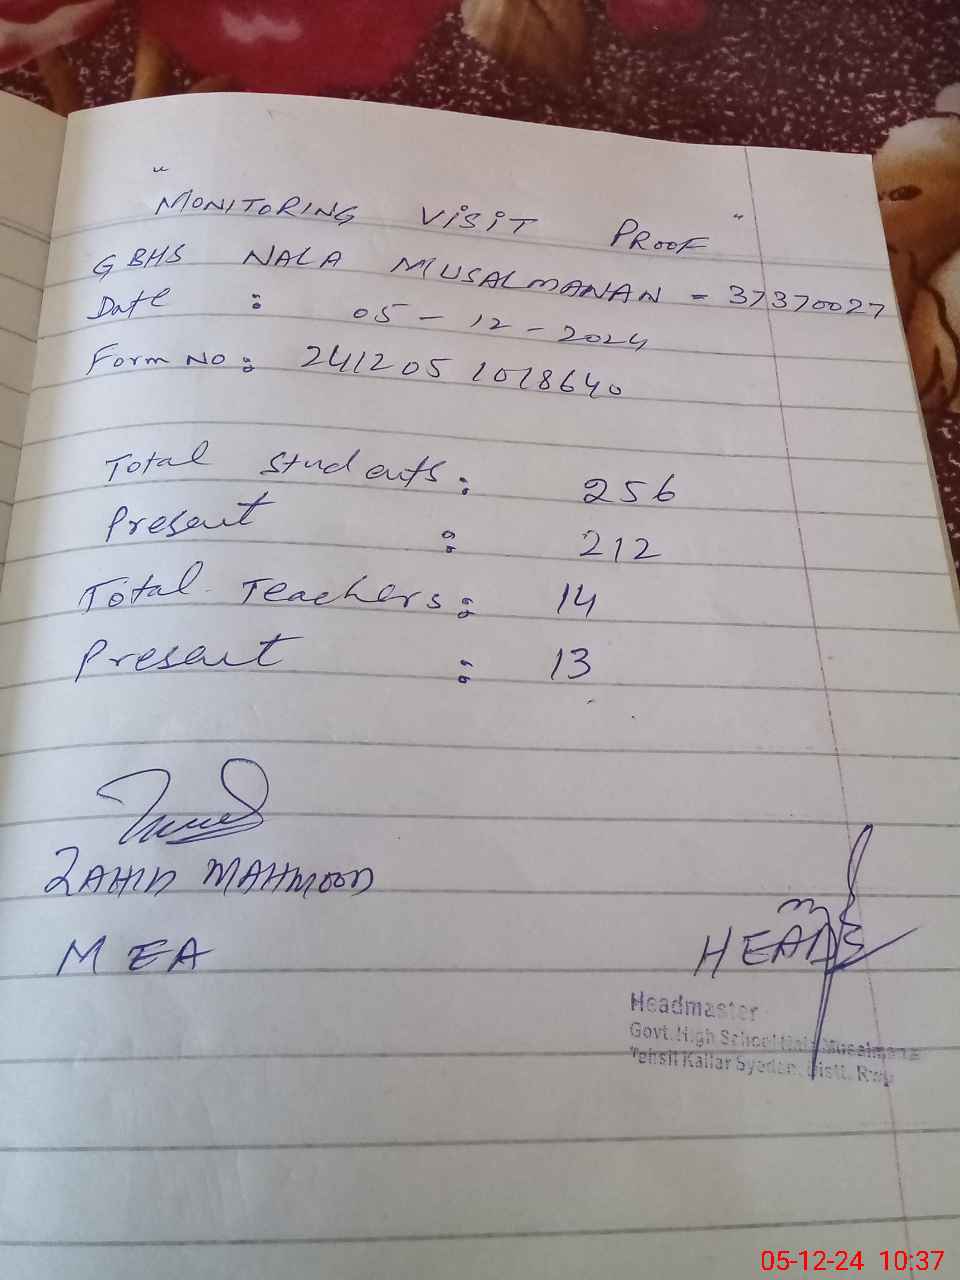 "MONITORING VISIT PROOF"
GBHS NALA MUSALMANAN - 37370027
Date : 05-12-2024
Form No: 2412051018640
Total Students: 256
Present : 212
Total Teachers: 14
Present : 13
ZAHID MAHMOOD
MEA
HEAD
Headmaster
Govt. High School Nala Musalmana
Tehsil Kallar Syedan, Distt. Rwp
05-12-24 10:37